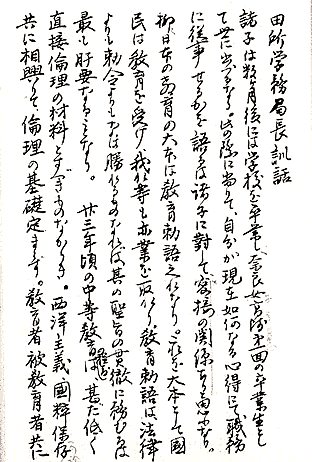 田所学務局長訓話
諸子は数月後には学校を卒業し、奈良女高師第一回の卒業生と
て世に出づるなり。此の際に当りて、自分が現在如何なる心得にて職務
に従事せるかを語るは諸子に対して密接の関係ある事なり。
抑日本の教育の大本は教育勅語之れなり。これを大本として国
民は教育を受け我が等も亦業を取れり。教育勅語は法律
よりも勅令よりも力は勝れるものなれば其の聖旨の貫徹に務むるは
最も肝要なることなり。廿三年頃の中等教育程度は甚だ低く
直接倫理の材料とすべきものなかりき。西洋主義、国粋保存
共に相興りて倫理の基礎定まらず。教育者被教育者共に